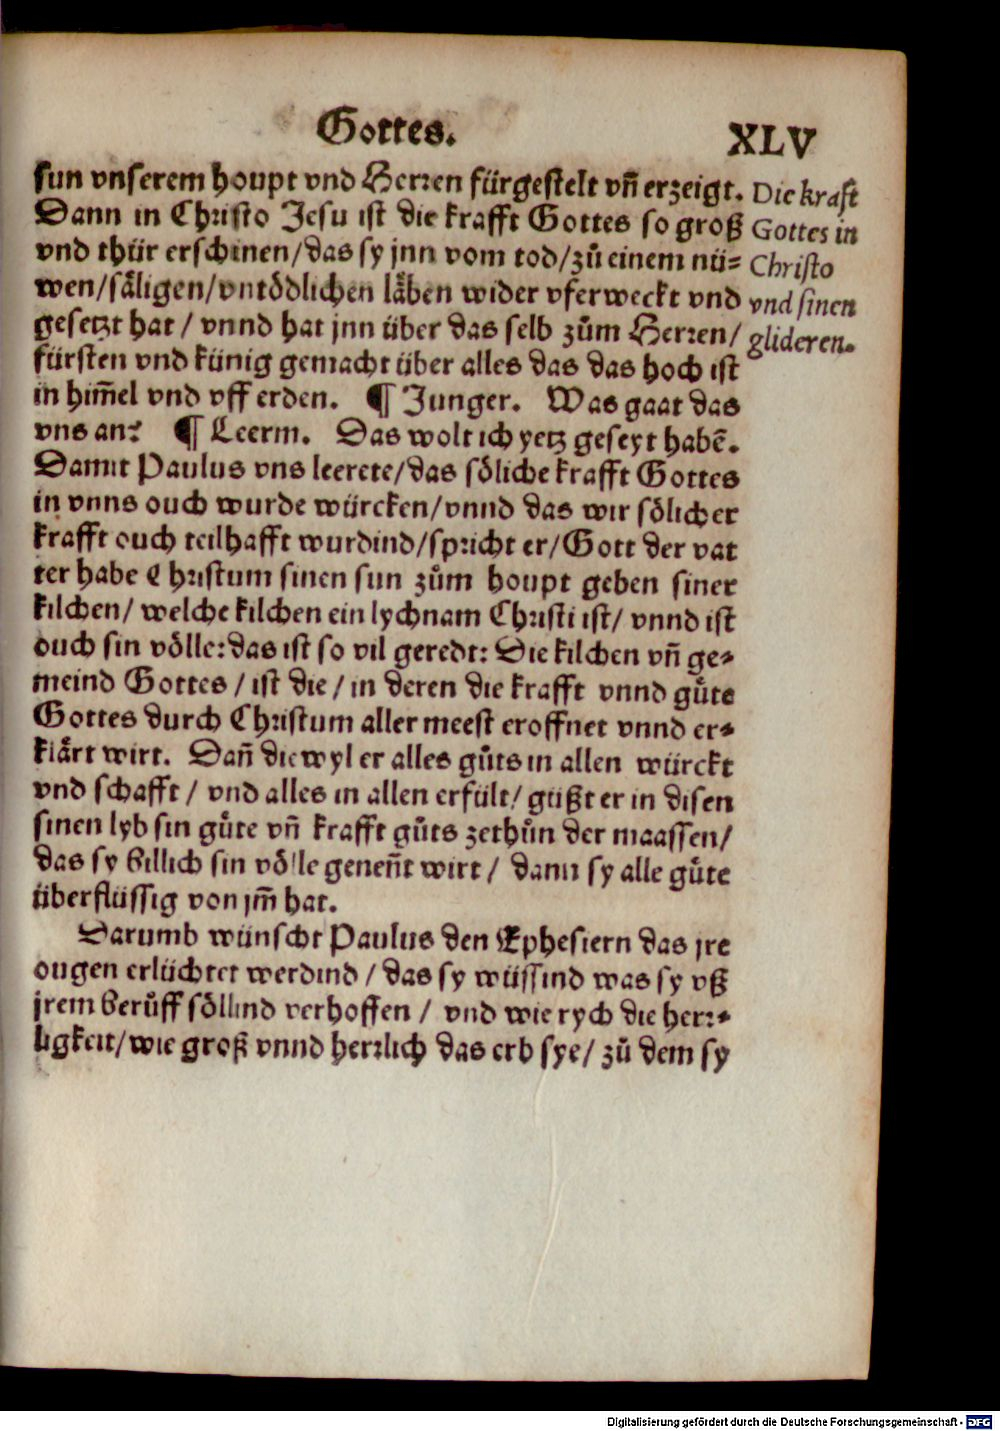 Gottes.
XLV
sun vnserem houpt vnd Herren fürgestelt vñ erzeigt.
Dann in Christo Jesu ist die krafft Gottes so groß
vnd thür erschinen/das sy jnn vom tod/zů einem nü-
wen/säligen/vntödlichen läben wider vferweckt vnd
gesetzt hat / vnnd hat jnn über das selb zům Herren/
fürsten vnd künig gemacht über alles das das hoch ist
in him̃el vnd vff erden. ¶ Junger. Was gaat das
vns an? ¶ Leerm. Das wolt ich yetz geseyt habē.
Damit Paulus vns leerete/das söliche krafft Gottes
in vnns ouch wurde würcken/vnnd das wir sölicher
krafft ouch teilhafft wurdind/spricht er/Gott der vat
ter habe Christum sinen sun zům houpt geben siner
kilchen/ welche kilchen ein lychnam Christi ist/ vnnd ist
ouch sin völle: das ist so vil geredt: Die kilchen vñ ge-
meind Gottes / ist die / in deren die krafft vnnd gůte
Gottes durch Christum aller meest eroffnet vnnd er-
klärt wirt. Dañ die wyl er alles gůts in allen würckt
vnd schafft / vnd alles in allen erfült/ güßt er in disen
sinen lyb sin gůte vñ krafft gůts zethůn der maassen/
das sy billich sin völle geneñt wirt / dann sy alle gůte
überflüssig von jm̃ hat.
Darumb wünscht Paulus den Ephesiern das jre
ougen erlüchtet werdind / das sy wüssind was sy vß
jrem berůff söllind verhoffen / vnd wie rych die herr-
ligkeit/wie groß vnnd herrlich das erb sye/ zů dem sy
Die kraft
Gottes in
Christo
vnd sinen
glideren.
Digitalisierung gefördert durch die Deutsche Forschungsgemeinschaft - DFG